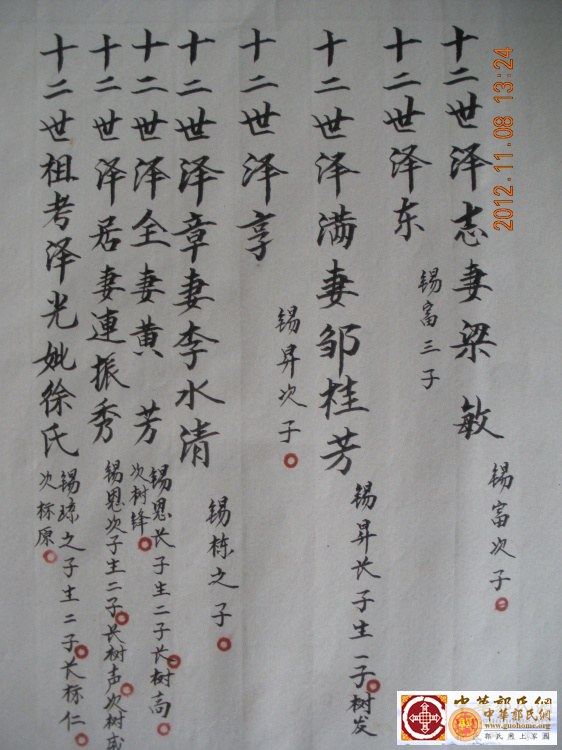 十二世泽志妻梁敏
锡富次子
十二世泽东
锡富三子
十二世泽满妻邹桂芳
锡昇长子生一子树发
十二世泽享
锡昇次子
十二世泽章妻李水清
锡栋之子
十二世泽全妻黄芳
锡恩长子生二子长树高
次树锋
十二世泽居妻連振秀
锡恩次子生二子长树声次树
十二世祖考泽光妣徐氏
锡琼之子生二子长标仁
次标原
2012.11.08 13:24
中华郭氏网
中華郭氏網
www.guohome.org
郭氏网上家园